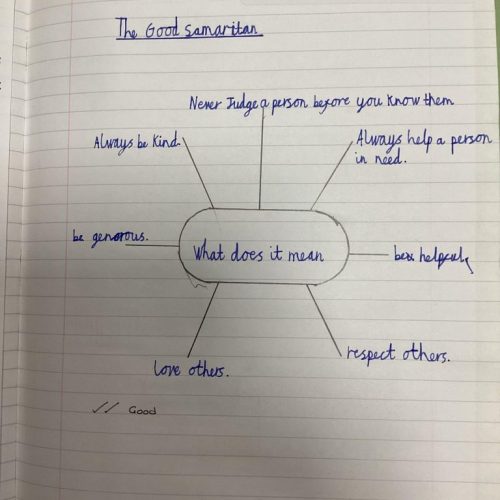 The Good Samaritan
Never Judge a person before you know them
Always be kind.
Always help a person
in need.
be generous.
What does it mean
be helpful
love others.
respect others.
Good